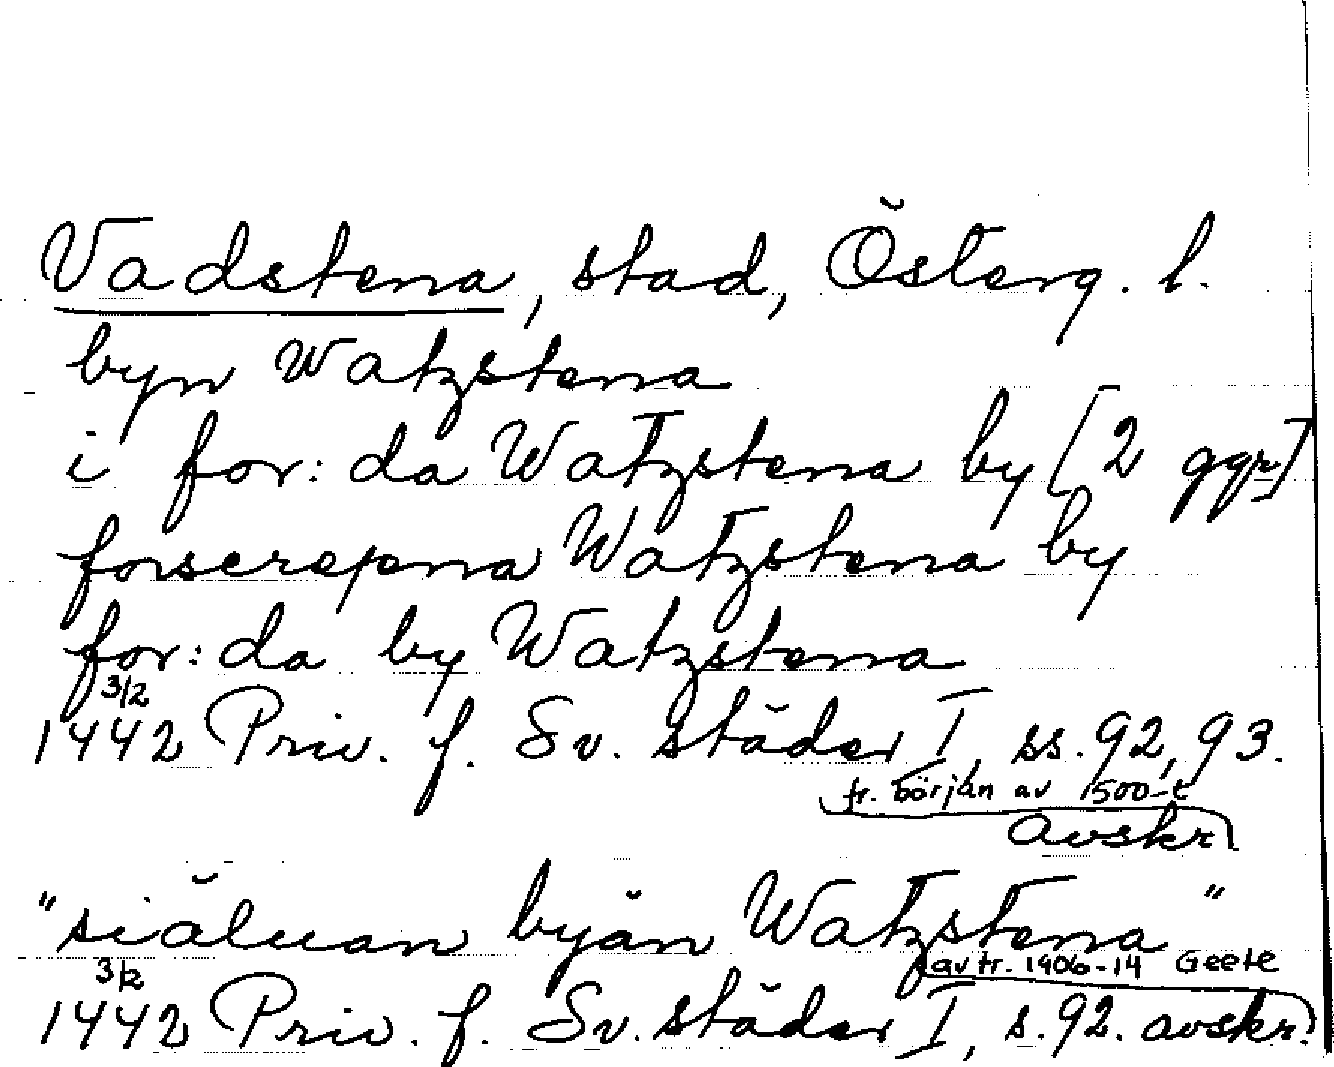 Vadstena, stad, Österg. l.
byn Watzstena
i for: da Watzstena by [2 ggr]
forscrepna Watzstena by
for: da by Watzstena
3/2
1442 Priv. f. Sv. städer I, ss. 92, 93.
fr. början av 1500-t
avskr.
"siäluan byän Watzstena"
3/2 av tr. 1906-14 Geete
1442 Priv. f. Sv. städer I, s. 92. avskr.